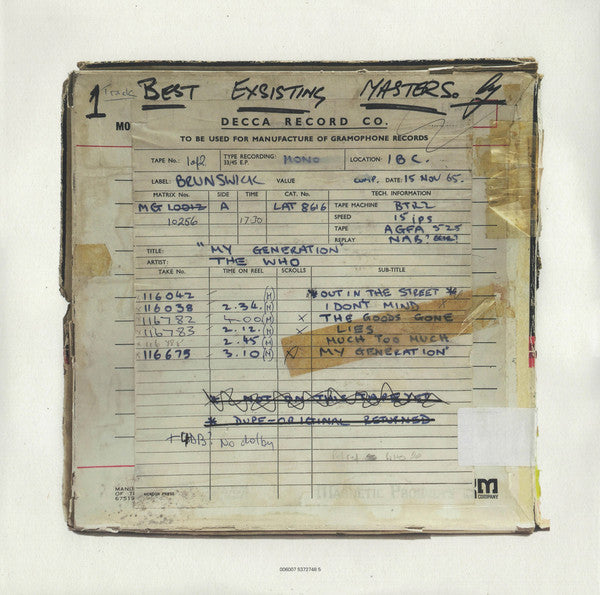 1 Track BEST EXSISTING MASTERS. by
MO
DECCA RECORD CO.
TO BE USED FOR MANUFACTURE OF GRAMOPHONE RECORDS
TAPE No.: 1 of 2 TYPE RECORDING: 33/45 E.P. MONO LOCATION: IBC.
LABEL: BRUNSWICK VALUE COMP. DATE: 15 NOV 65.
MATRIX No. SIDE TIME CAT. No. TECH. INFORMATION
MG A LAT 8616 TAPE MACHINE BTR2
10256 17.30 SPEED 15 ips
TAPE AGFA 525
REPLAY NAB?
TITLE: "MY GENERATION"
ARTIST: THE WHO
TAKE No. TIME ON REEL SCROLLS SUB-TITLE
116042 (M) * OUT IN THE STREET *
116038 2.34. (M) I DON'T MIND x
116782 4.00 (M) x THE GOODS GONE
116783 2.12. (M) x LIES
2.45 (M) MUCH TOO MUCH
116675 3.10 (M) MY GENERATION"
* NOT ON THIS
* DUPE-ORIGINAL RETURNED
No dolby
MAGNETIC PRODUCTS
m
COMPANY
MANU
OF T
67519
006007 5372748 5